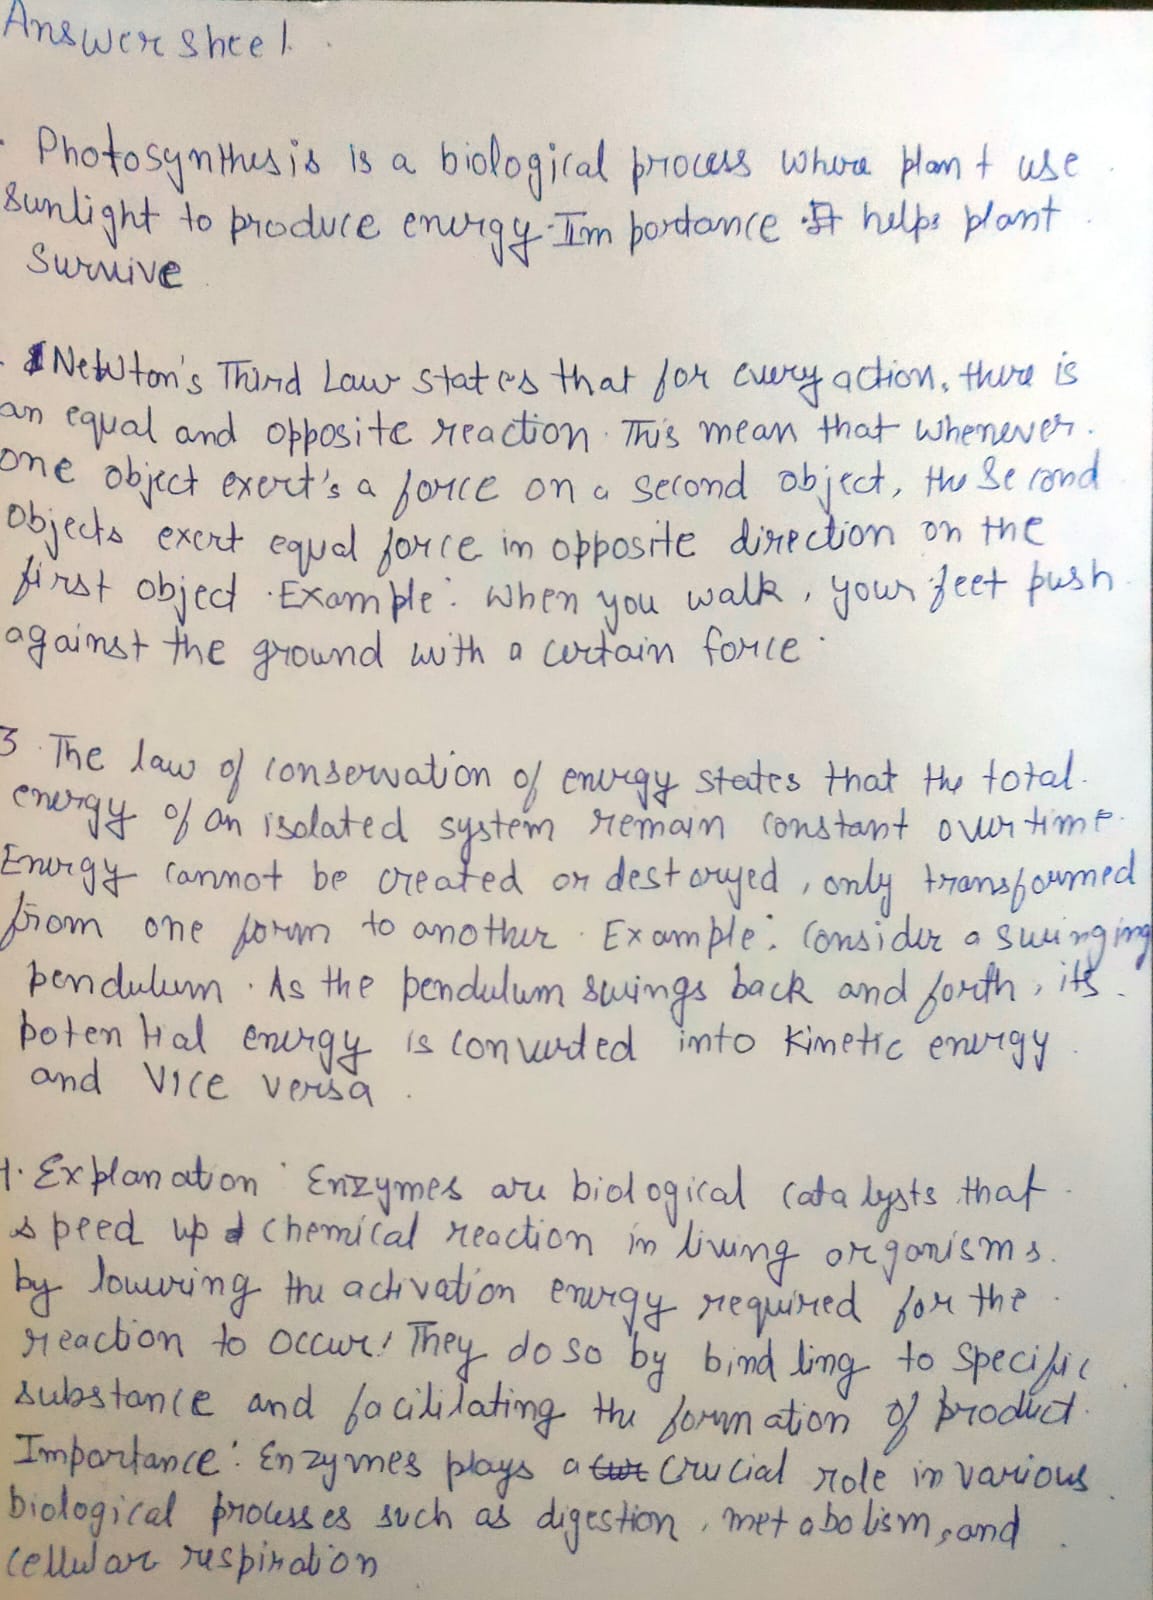 Answer sheet.
. Photosynthesis is a biological process where plant use
sunlight to produce energy. Importance . It helps plant
survive
. Newton's Third Law states that for every action, there is
an equal and opposite reaction. This mean that whenever.
one object exert's a force on a second object, the second
objects exert equal force in opposite direction on the
first object. Example: When you walk, your feet push
against the ground with a certain force.
3. The law of conservation of energy states that the total.
energy of an isolated system remain constant over time.
Energy cannot be created or destoryed, only transformed
from one form to another. Example: Consider a swinging
pendulum. As the pendulum swings back and forth, its.
potential energy is converted into kinetic energy
and vice versa.
4. Explanation: Enzymes are biological catalysts that
speed up chemical reaction in living organisms.
by lowering the activation energy required for the
reaction to occur! They do so by bindling to specific
substance and facilitating the formation of product.
Importance: Enzymes plays a crucial role in various
biological processes such as digestion, metabolism, and
cellular respiration